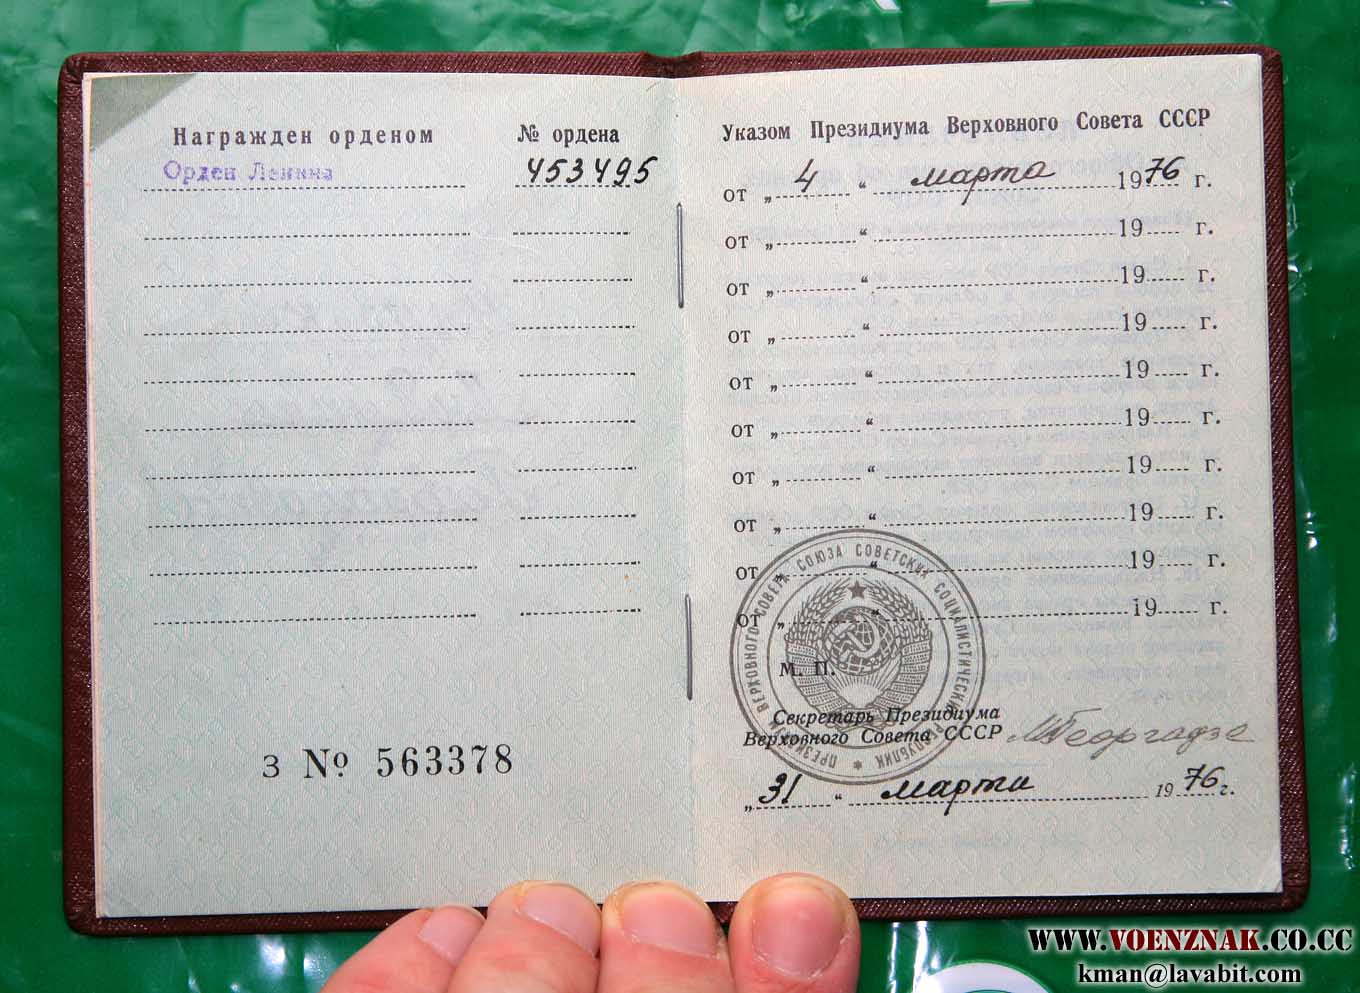 Награжден орденом
№ ордена
Орден Ленина
453495
З № 563378
Указом Президиума Верховного Совета СССР
от „ 4 “ марта 1976 г.
от „ “ 19 г.
от „ “ 19 г.
от „ “ 19 г.
от „ “ 19 г.
от „ “ 19 г.
от „ “ 19 г.
от „ “ 19 г.
от „ “ 19 г.
от „ “ 19 г.
ПРЕЗИДИУМ ВЕРХОВНОГО СОВЕТА СОЮЗА СОВЕТСКИХ СОЦИАЛИСТИЧЕСКИХ РЕСПУБЛИК *
М. П.
Секретарь Президиума
Верховного Совета СССР
М Георгадзе
„ 31 “ марта 1976 г.
WWW.VOENZNAK.CO.CC
kman@lavabit.com